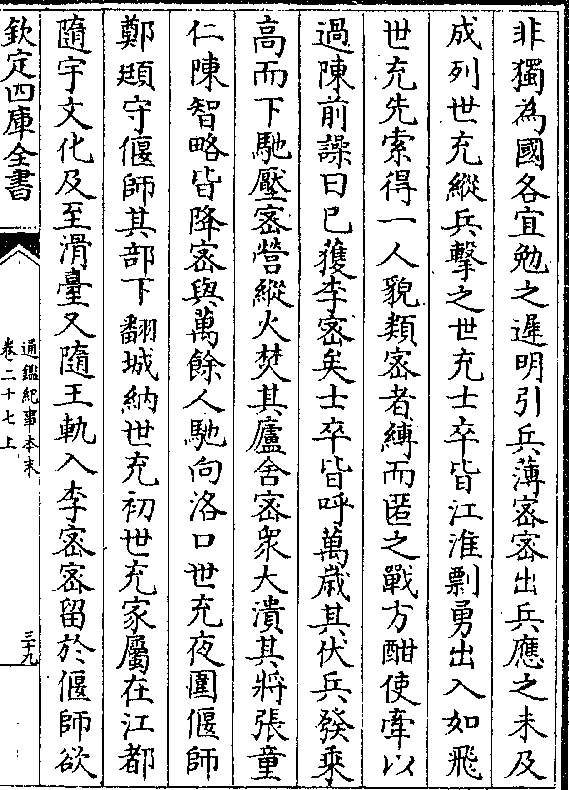 非獨為國各宜勉之遲明引兵薄密密出兵應之未及
成列世充縱兵擊之世充士卒皆江淮剽勇出入如飛
世充先索得一人貌類密者縛而匿之戰方酣使牽以
過陳前譟曰已獲李密矣士卒皆呼萬歳其伏兵發乗
高而下馳壓密營縱火焚其廬舍密衆大潰其將張童
仁陳智略皆降密與萬餘人馳向洛口世充夜圍偃師
鄭頲守偃師其部下翻城納世充初世充家屬在江都
隨宇文化及至滑臺又隨王軌入李密密留於偃師欲
欽定四庫全書
通鑑紀事本末
卷二十七上
三十九